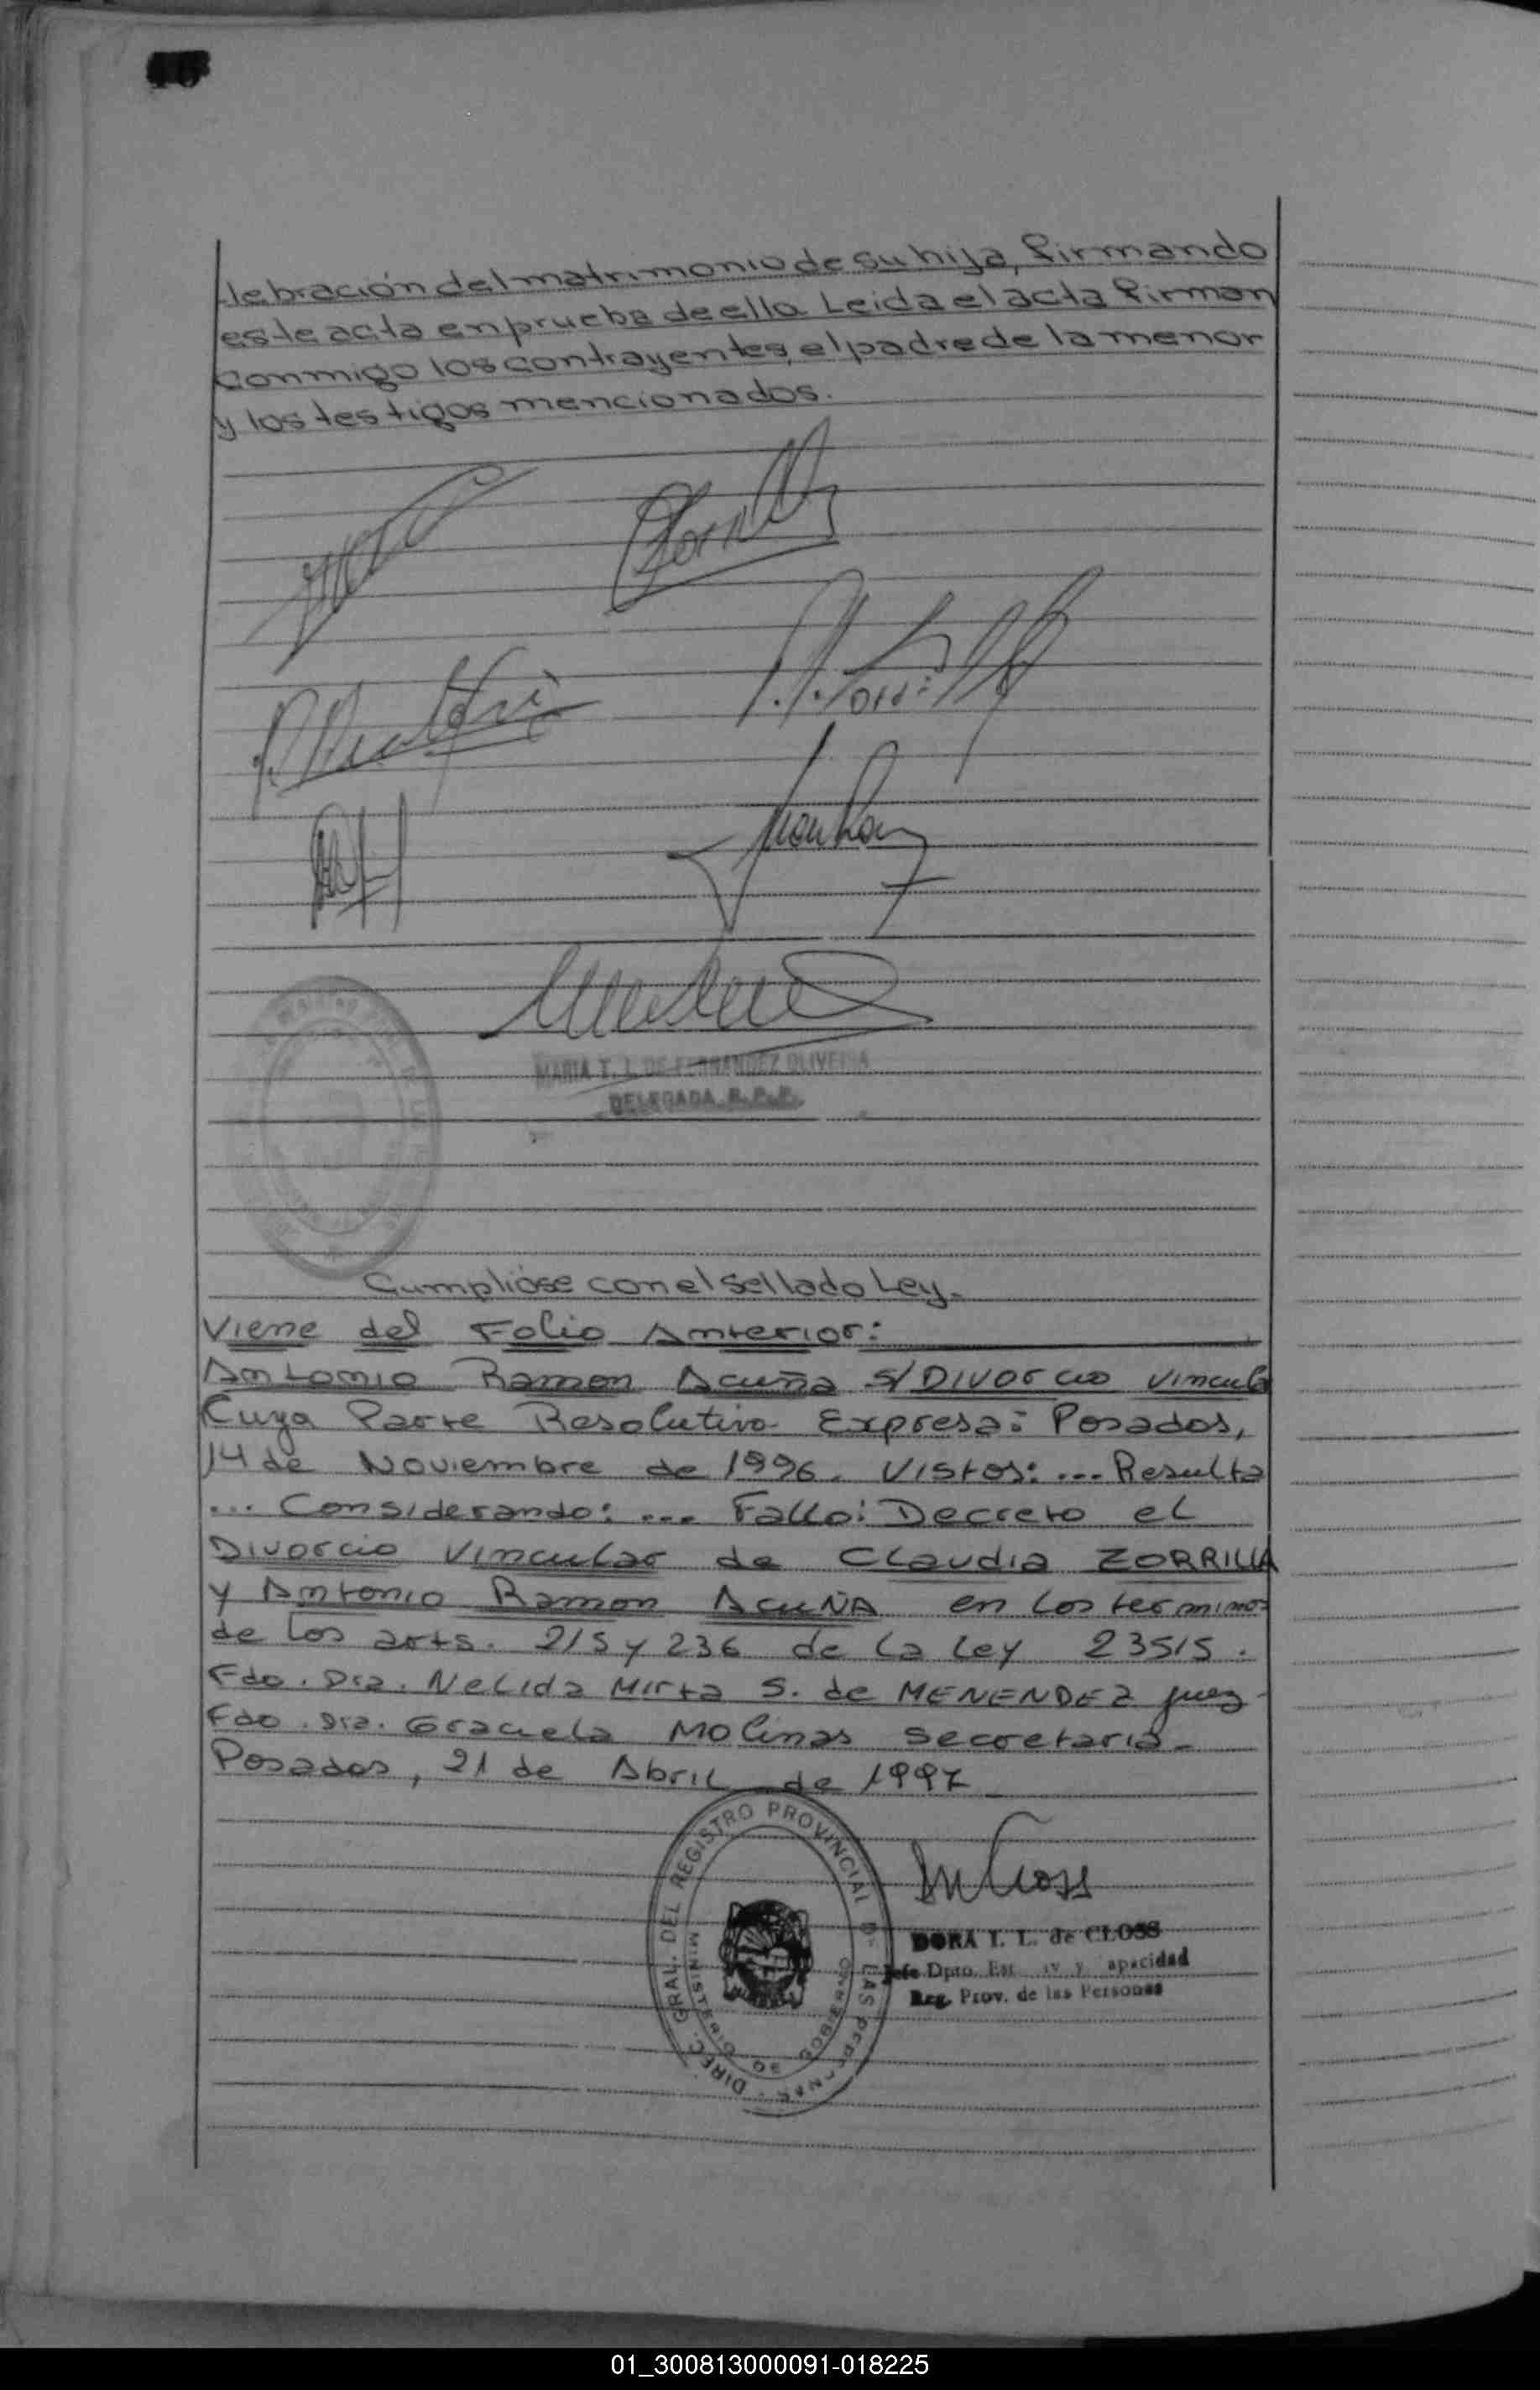 lebración del matrimonio de su hija, firmando
este acta en prueba de ello. Leida el acta firman
conmigo los contrayentes, el padre de la menor
y los testigos mencionados.
MARIA T. L. DE FERNANDEZ OLIVEIRA
DELEGADA R.P.P.
Cumplióse con el sellado Ley.
Viene del Folio Anterior:
Antonio Ramon Acuña S/ Divorcio Vincula
Cuya Parte Resolutiva Expresa: Posadas,
14 de Noviembre de 1996. Vistos: ... Resulta
... Considerando: ... Fallo: Decreto el
Divorcio Vincular de Claudia ZORRILLA
y Antonio Ramon ACUÑA en los terminos
de los arts. 215 y 236 de la Ley 23515.
Fdo. Dra. Nelida Mirta S. de MENENDEZ juez-
Fdo. Dra. Graciela Molinas Secretaria-
Posadas, 21 de Abril de 1997
DIREC. GRAL. DEL REGISTRO PROVINCIAL DE LAS PERSONAS
MINISTERIO DE GOBIERNO
DORA I. L. de CLOSS
Jefe Dpto. Est iv y apacidad
Reg. Prov. de las Personas
01_300813000091-018225